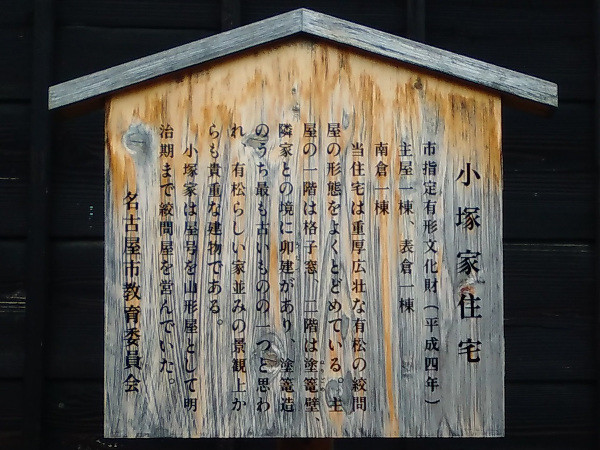 小塚家住宅
市指定有形文化財（平成四年）
主屋一棟、表倉一棟
南倉一棟
当住宅は重厚広壮な有松の絞問
屋の形態をよくとどめている。主
屋の一階は格子窓、二階は塗篭壁、
隣家との境に卯建があり、塗篭造
のうち最も古いものの一つと思わ
れ、有松らしい家並みの景観上か
らも貴重な建物である。
小塚家は屋号を山形屋として明
治期まで絞問屋を営んでいた。
名古屋市教育委員会